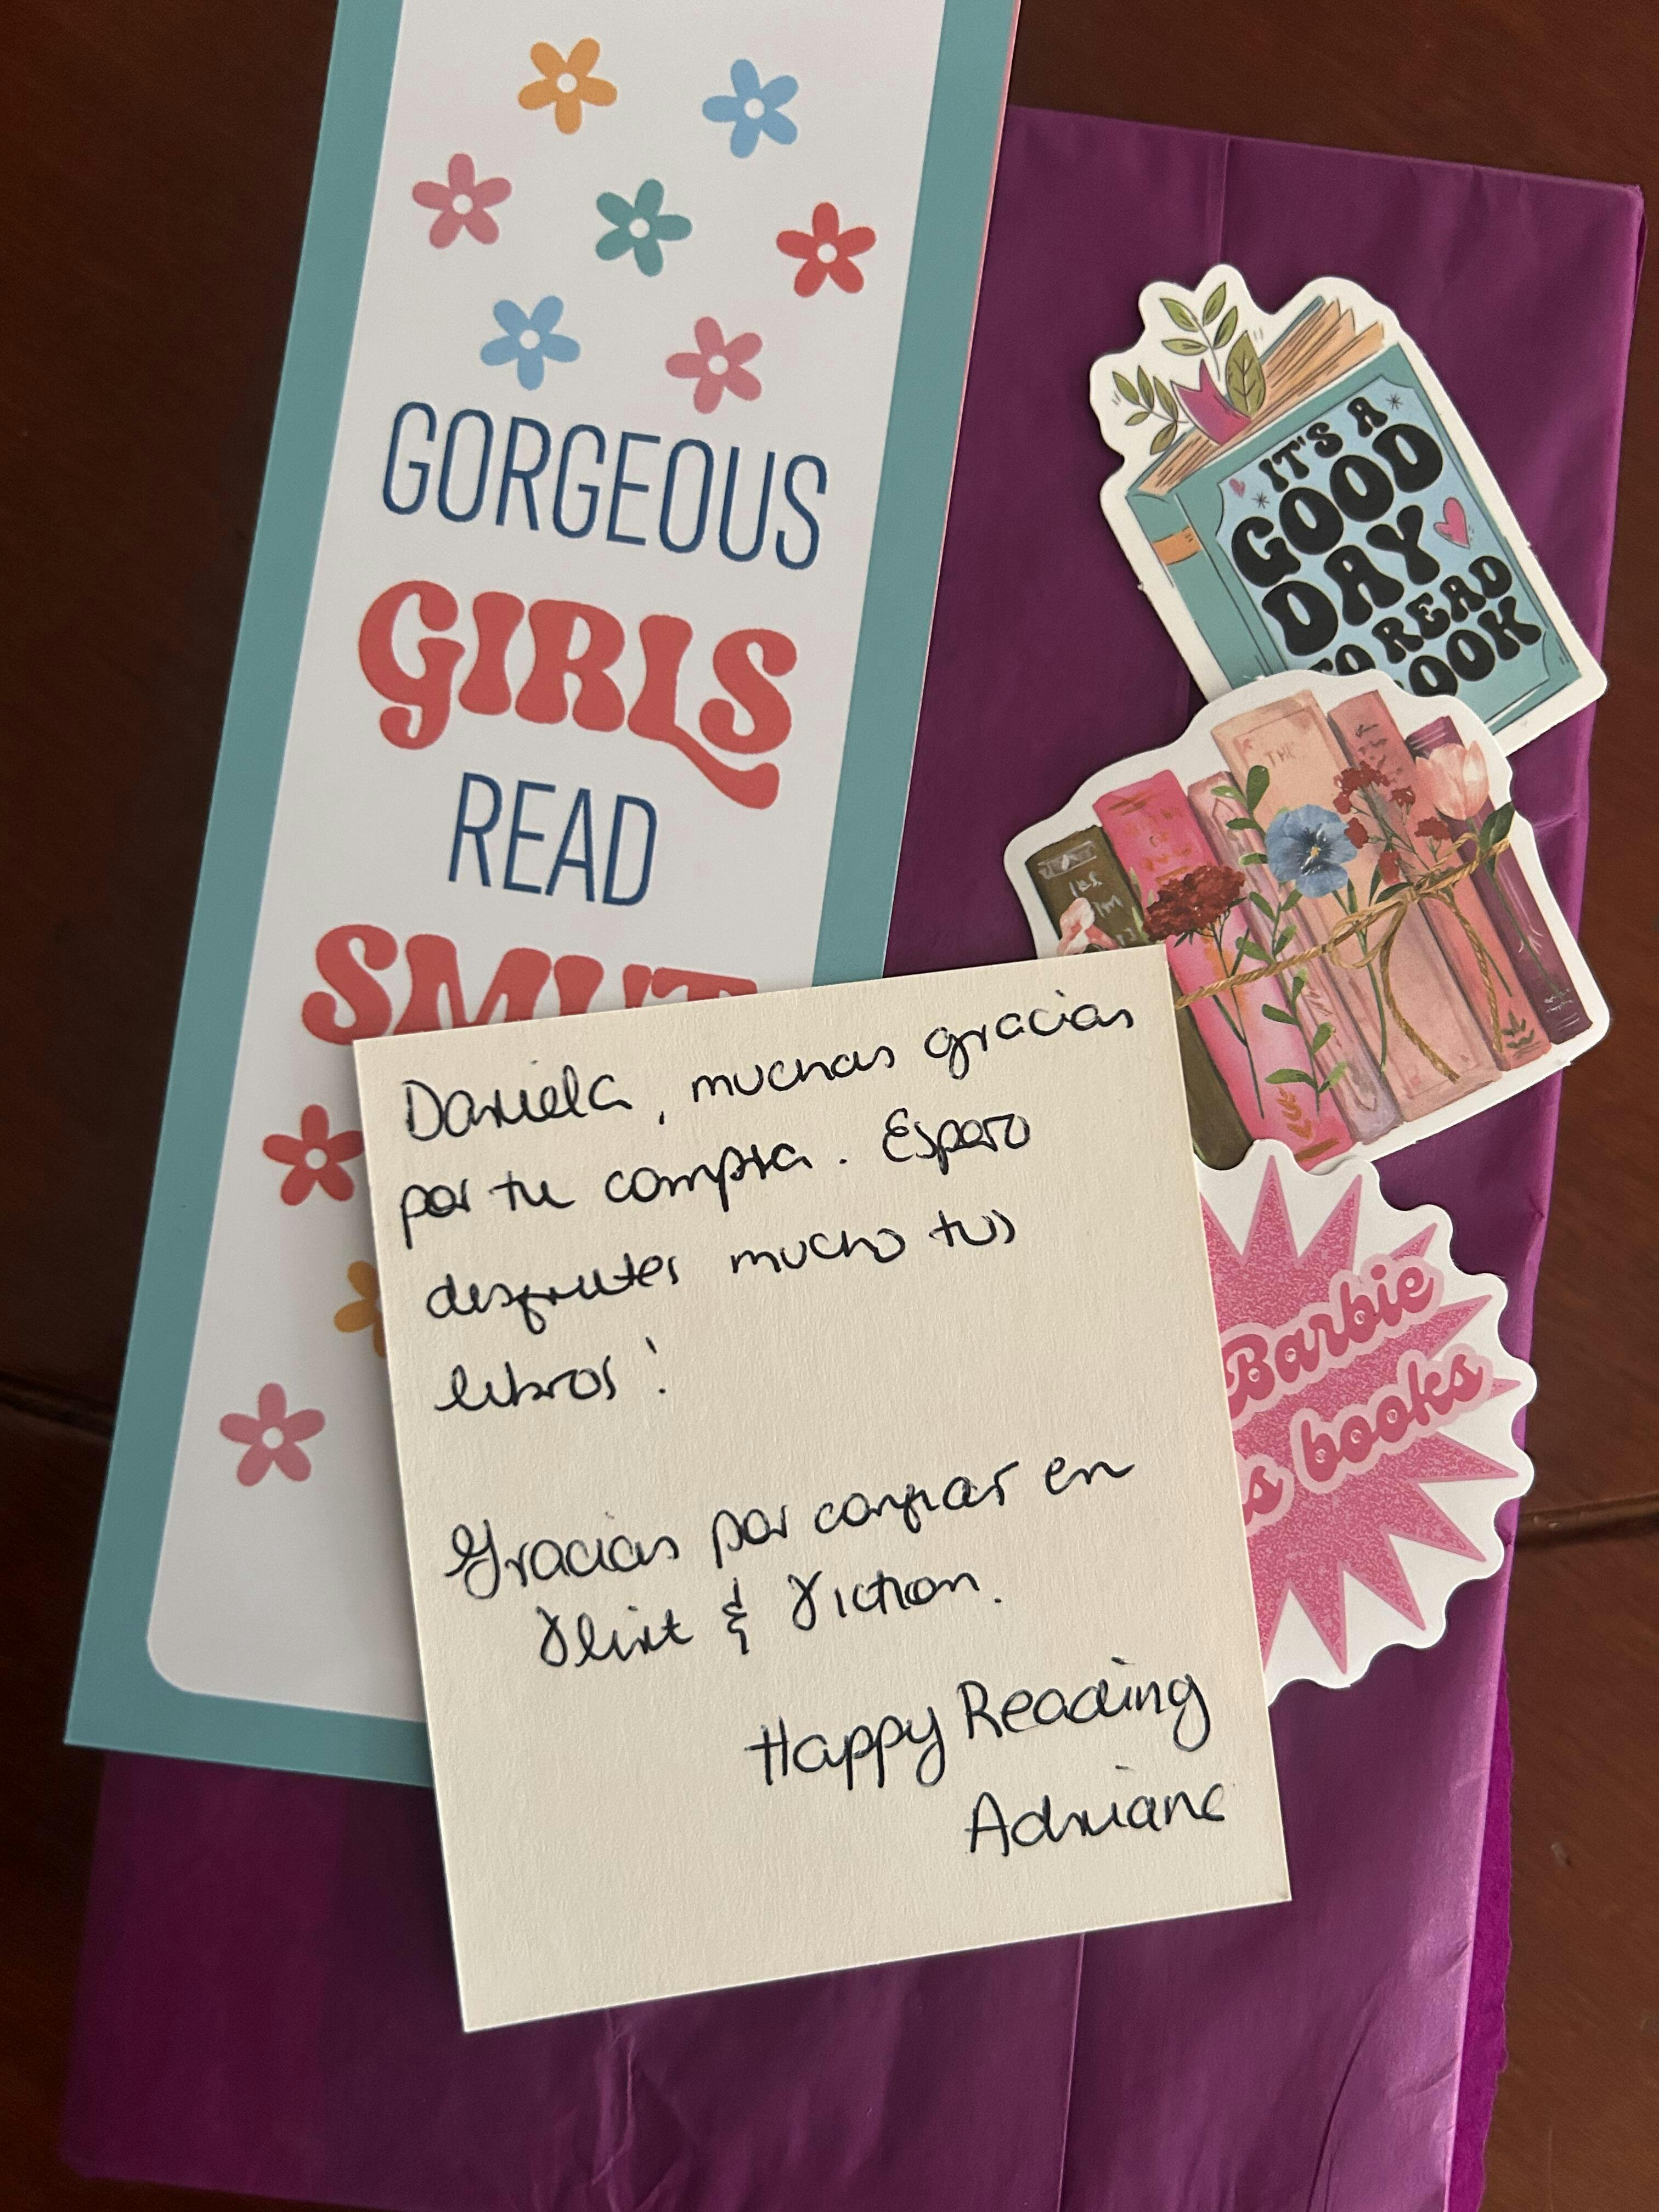 GORGEOUS
GIRLS
READ
SMUT
IT'S A
GOOD
DAY
TO READ
OOK
THE
Daniela, muchas gracias
por tu compra. Espero
desfrutes mucho tus
libros!
Gracias por confiar en
Flirt & Fiction.
Happy Reading
Adriana
Barbie
s books